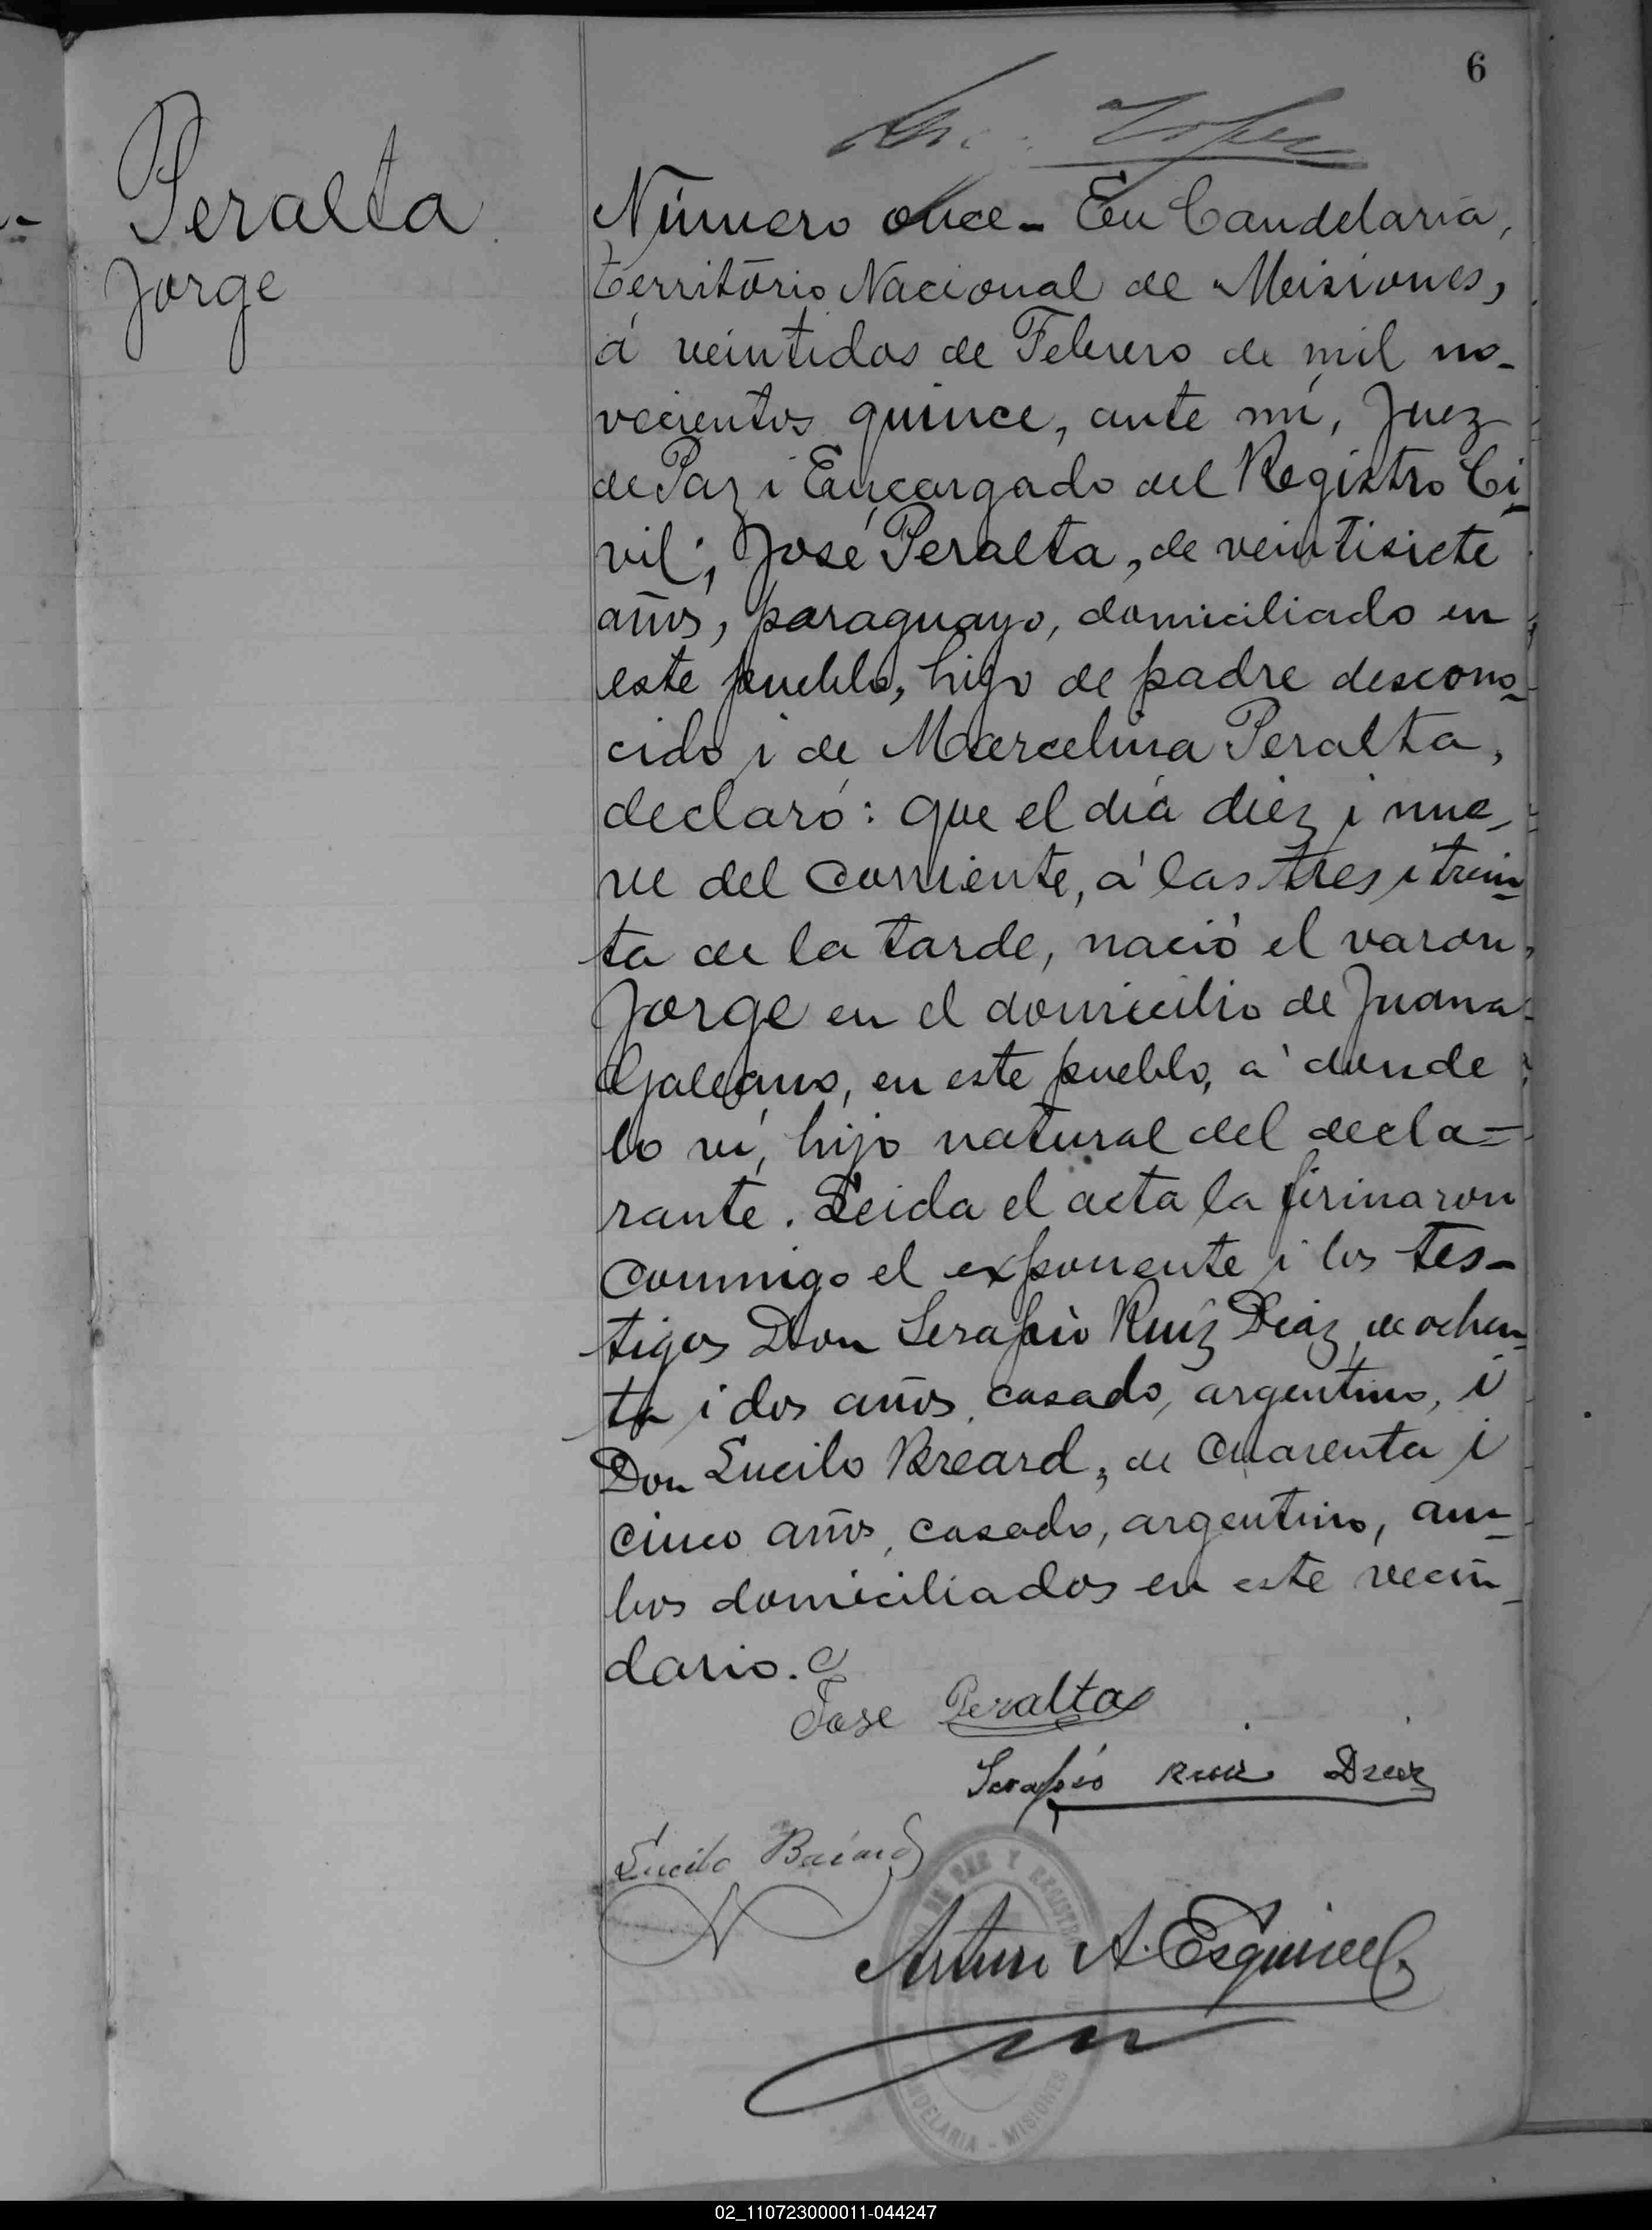 6
Peralta
Jorge
Lopez
Número once - En Candelaria,
territorio Nacional de Misiones,
á veintidos de Febrero de mil no-
vecientos quince, ante mí, Juez
de Paz i Encargado del Registro Ci-
vil; José Peralta, de veintisiete
años, paraguayo, domiciliado en
este pueblo, hijo de padre descono-
cido i de Marcelina Peralta,
declaró: que el día diez i nue-
ve del corriente, á las tres i trein-
ta de la tarde, nació el varon,
Jorge en el domicilio de Juana
Galeano, en este pueblo, á donde
lo ví, hijo natural del decla=
rante. Leida el acta la firmaron
conmigo el exponente i los tes-
tigos Don Serapio Ruíz Diaz, de ochen-
ta i dos años, casado, argentino, i
Don Lucilo Breard, de cuarenta i
cinco años, casado, argentino, am-
bos domiciliados en este vecin-
dario.
Jose Peralta
Serapio Ruiz Diaz
Lucilo
Arturo A. Esquivel
DE PAZ Y REGISTR
CANDELARIA - MISIONES
02_110723000011-044247